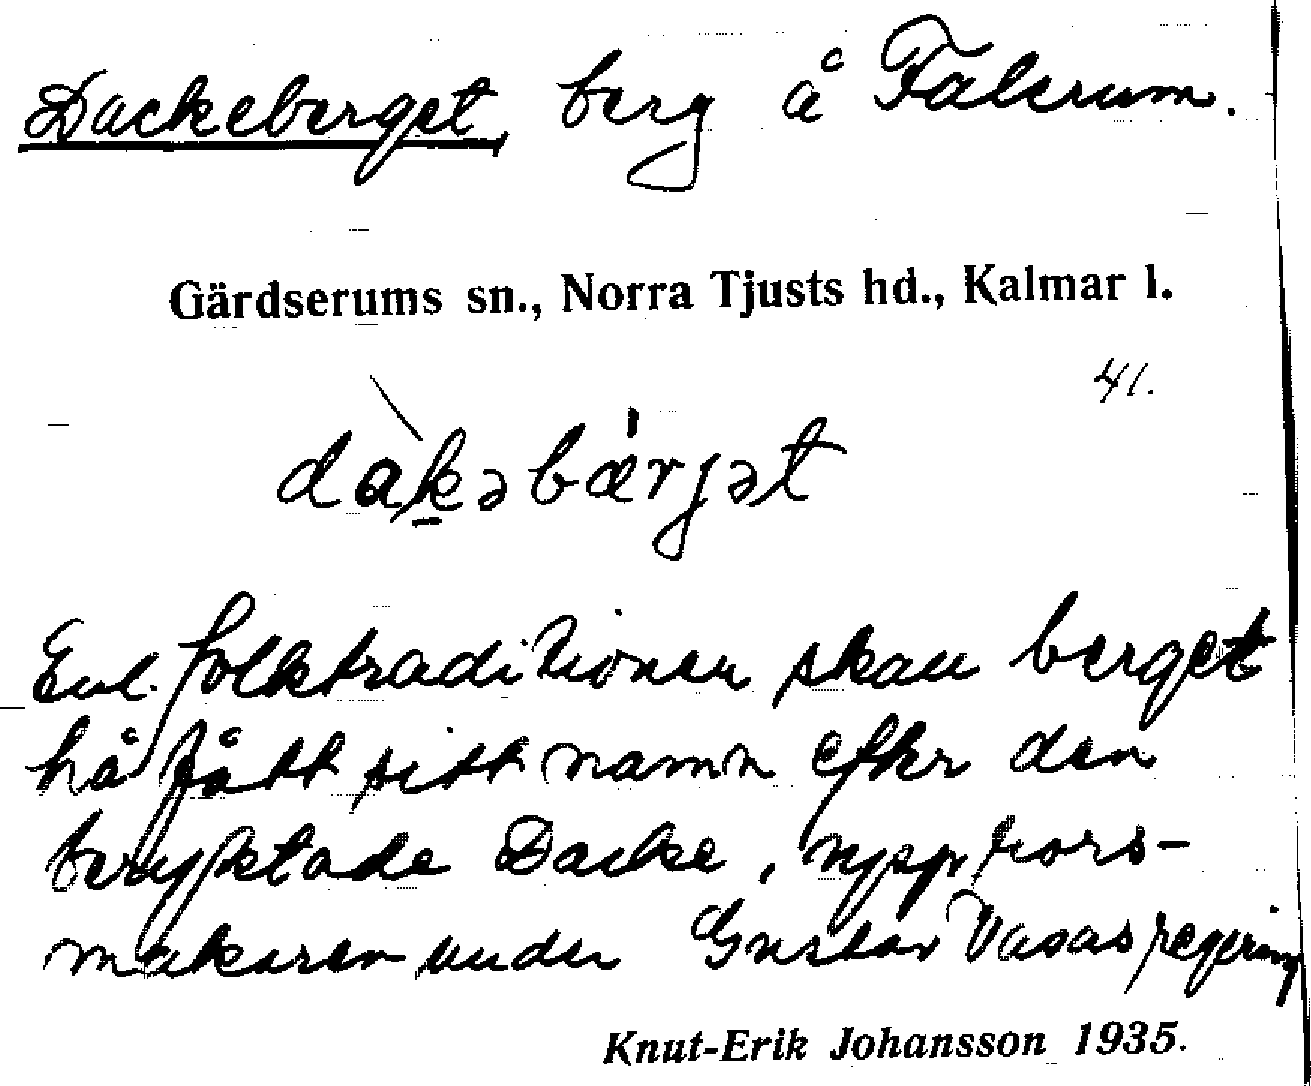 Dackeberget, berg å Falerum.
Gärdserums sn., Norra Tjusts hd., Kalmar l.
41.
dàkəbǽrjət
Enl. folktraditionen skall berget
ha fått sitt namn efter den
beryktade Dacke, upprors-
makaren under Gustav Vasas regering
Knut-Erik Johansson 1935.